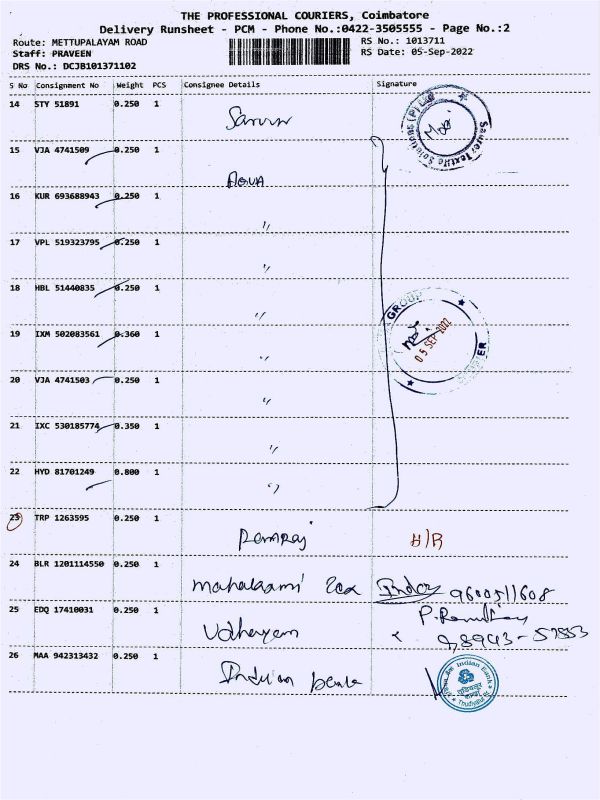 THE PROFESSIONAL COURIERS, Coimbatore
Delivery Runsheet - PCM - Phone No.:0422-3505555 - Page No.:2
Route: METTUPALAYAM ROAD RS No.: 1013711
Staff: PRAVEEN RS Date: 05-Sep-2022
DRS No.: DCJB101371102
S No Consignment No Weight PCS Consignee Details Signature
14 STY 51891 0.250 1
Saurer Textile Solutions (P) Ltd
15 VJA 4741509 0.250 1
AQUA
16 KUR 693688943 0.250 1
"
17 VPL 519323795 0.250 1
"
18 HBL 51440835 0.250 1
"
GROUP
19 IXM 502083561 0.360 1
05 SEP 2022
"
20 VJA 4741503 0.250 1
"
21 IXC 530185774 0.350 1
"
22 HYD 81701249 0.800 1
"
23 TRP 1263595 0.250 1
Ramraj H/R
24 BLR 1201114550 0.250 1
9600511608
25 EDQ 17410031 0.250 1
Udhayam
26 MAA 942313432 0.250 1
Indian bank
Indian Bank